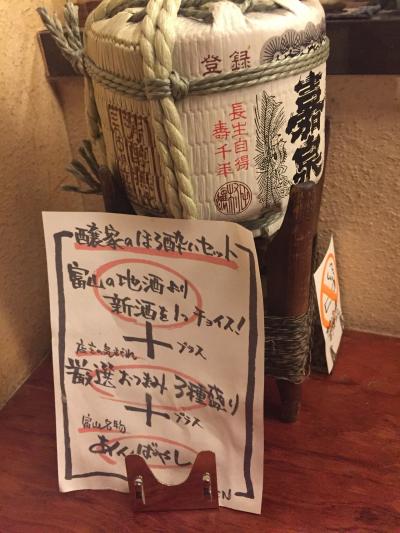 登録
嘉泉
長生自得
寿千年
醸家のほろ酔いセット
富山の地酒より
新酒を1つチョイス!
+プラス
店主の気まぐれ
厳選おつまみ3種盛り
+プラス
富山名物
EN